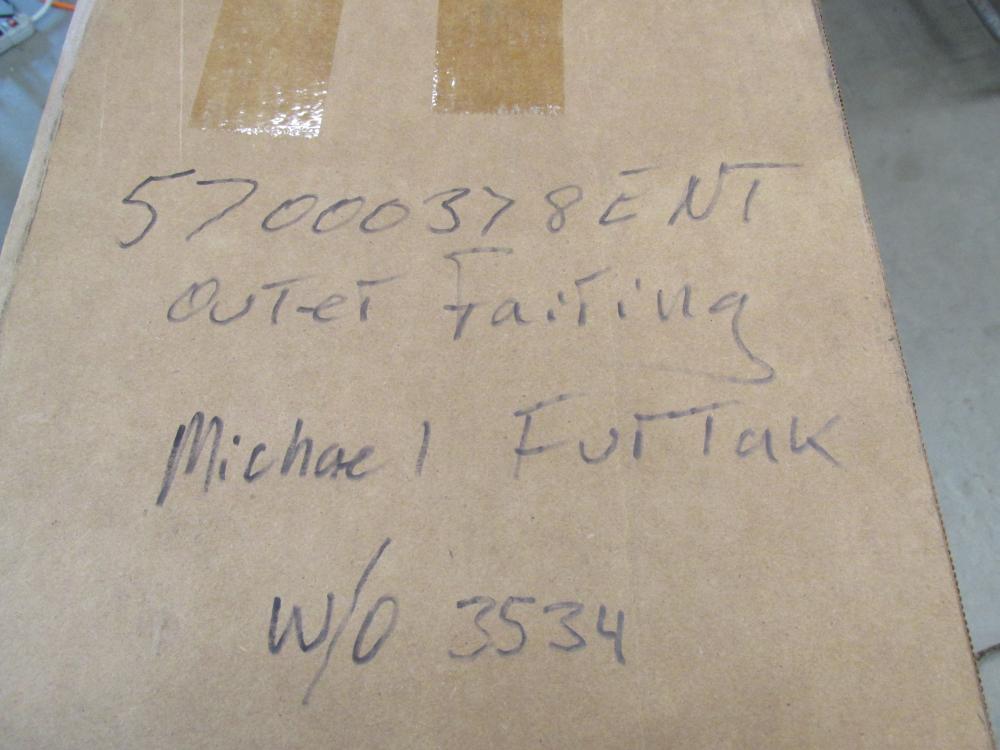 57000378ENT
Outer Fairing
Michael Furtak
W/O 3534